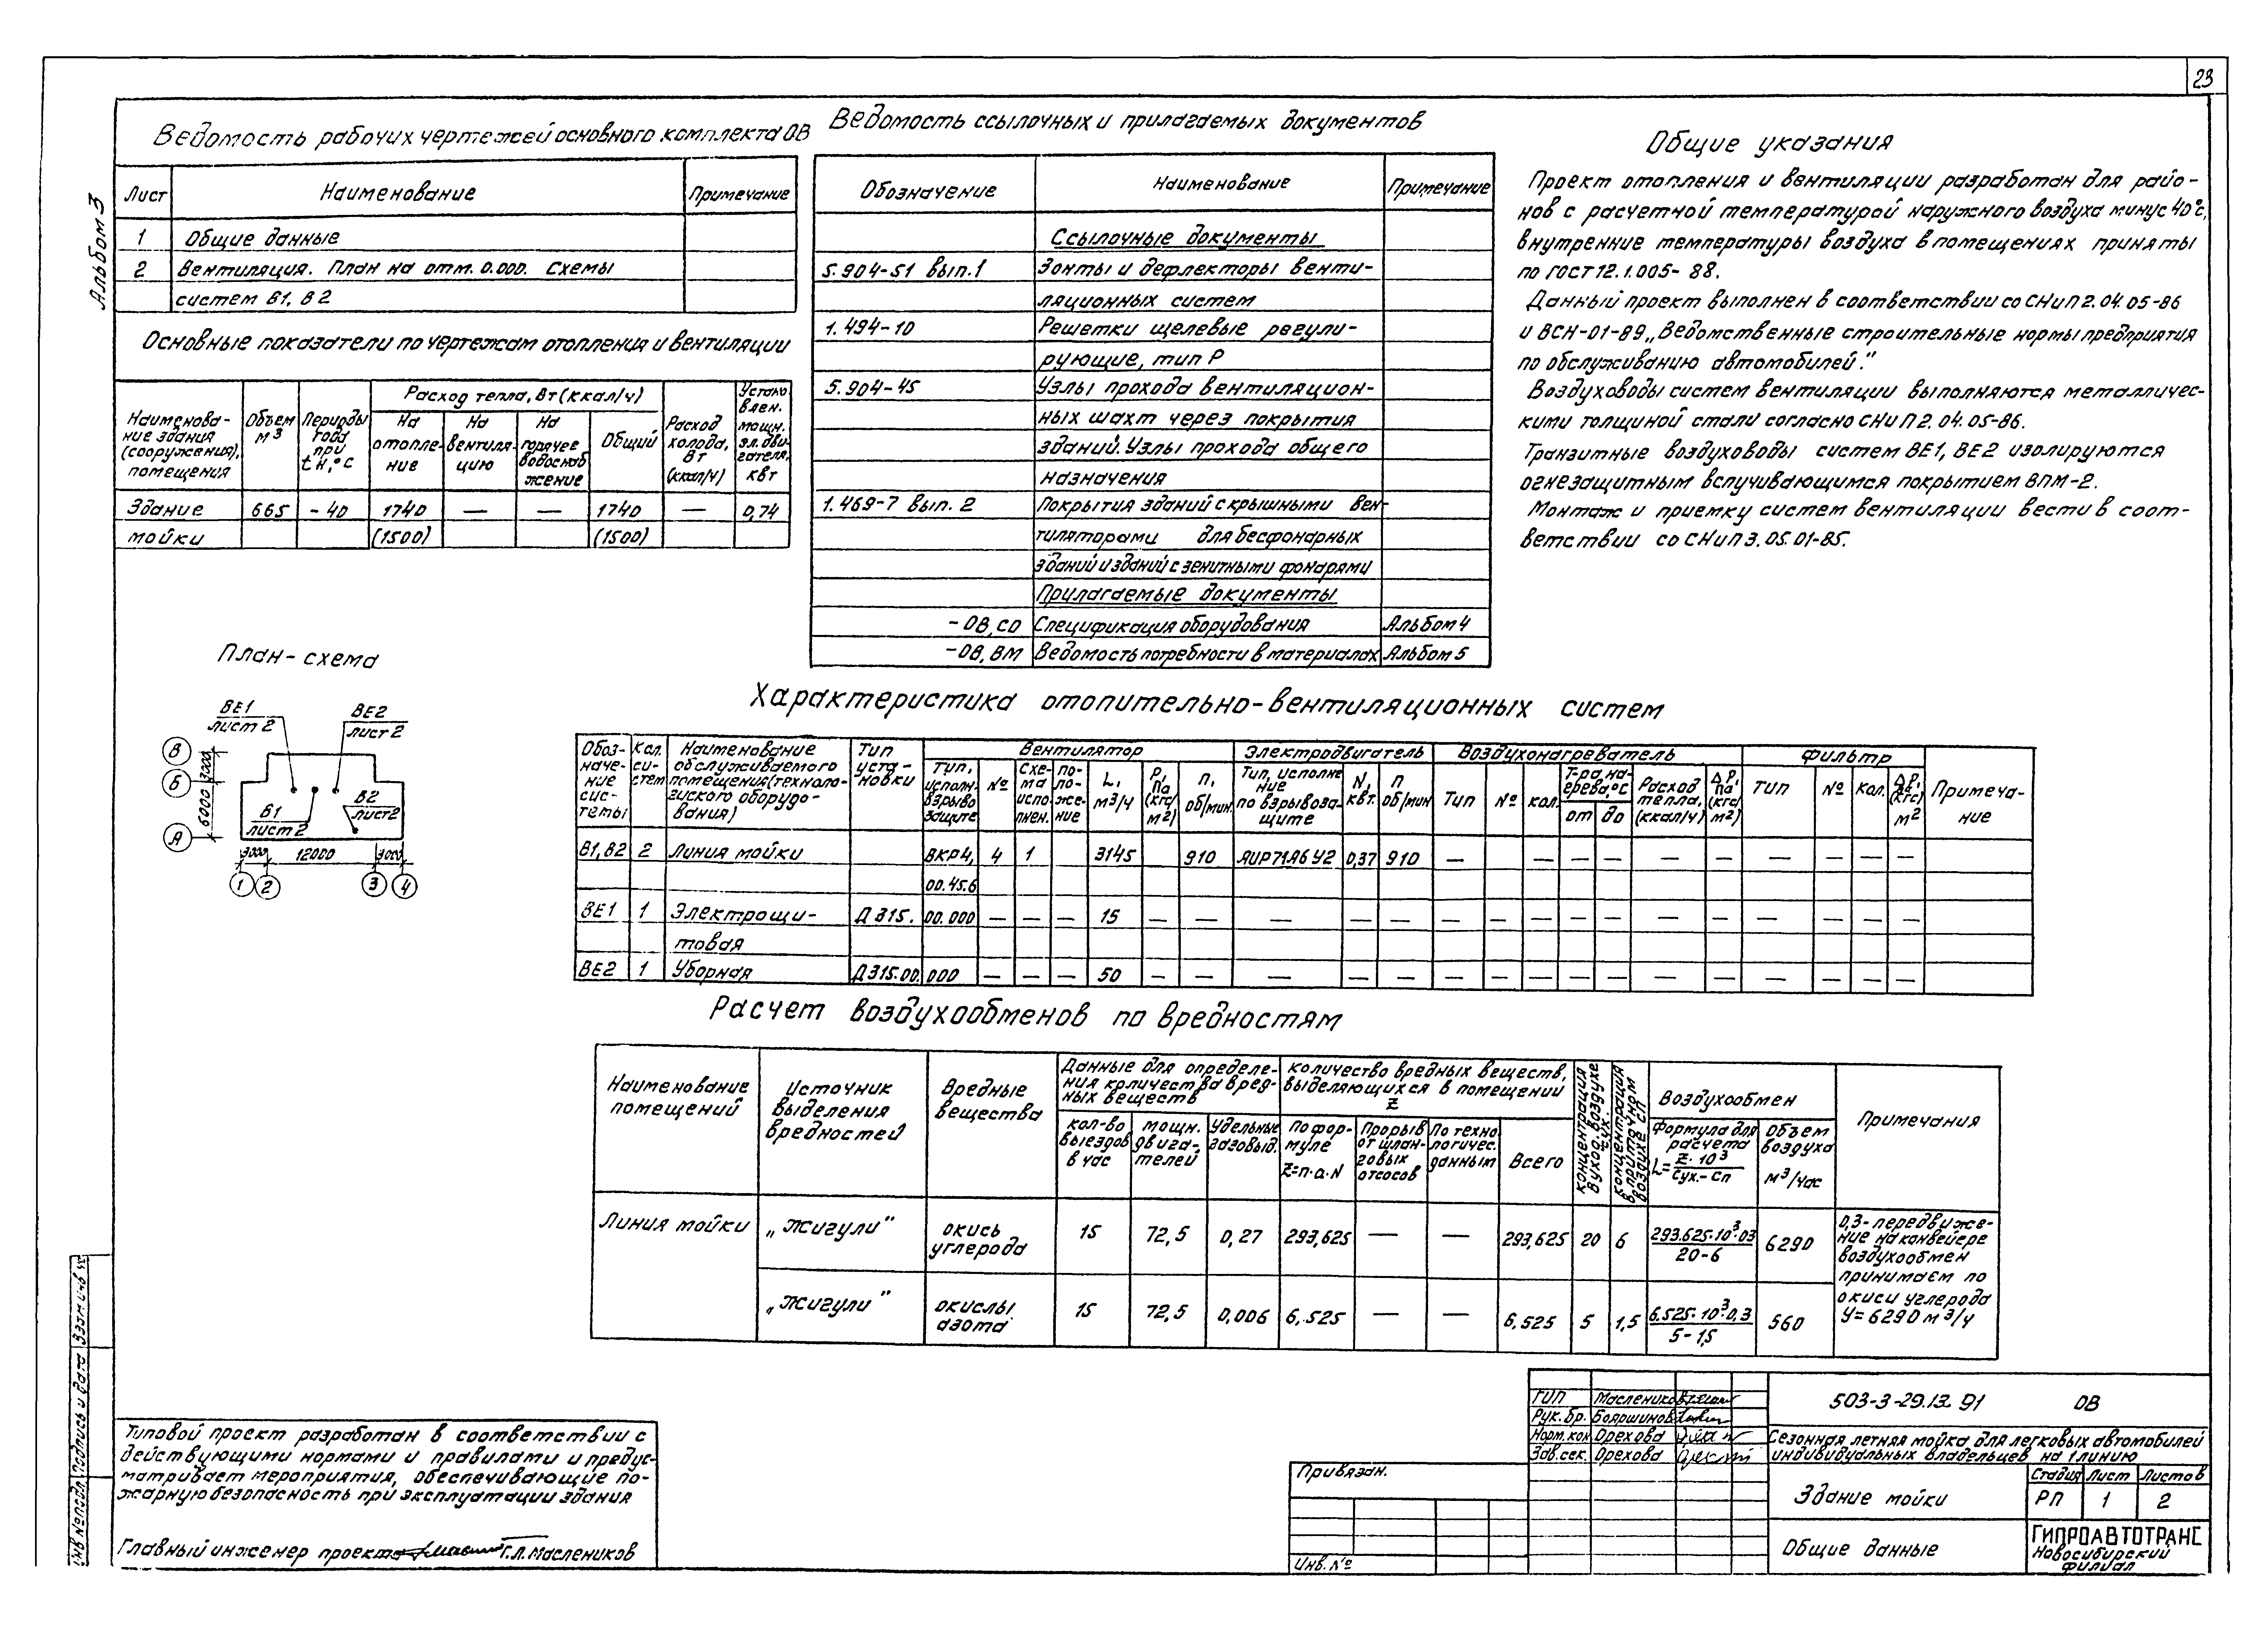 23
Альбом 3
Ведомость рабочих чертежей основного комплекта ОВ
Лист Наименование Примечание
1 Общие данные
2 Вентиляция. План на отм. 0.000. Схемы
систем В1, В2
Основные показатели по чертежам отопления и вентиляции
Наименова-
ние здания
(сооружения),
помещения
Объем
м³
Периоды
года
при
tн,°С
Расход тепла, Вт (ккал/ч)
На
отопле-
ние
На
вентиля-
цию
На
горячее
водоснаб
жение
Общий
Расход
холода,
Вт
(ккал/ч)
Устано
влен.
мощн.
эл. дви-
гателя,
квт
Здание 665 -40 1740 — — 1740 — 0,74
мойки (1500) (1500)
Ведомость ссылочных и прилагаемых документов
Обозначение Наименование Примечание
Ссылочные документы
5.904-51 вып.1 Зонты и дефлекторы венти-
ляционных систем
1.494-10 Решетки щелевые регули-
рующие, тип Р
5.904-45 Узлы прохода вентиляцион-
ных шахт через покрытия
зданий. Узлы прохода общего
назначения
1.469-7 вып. 2 Покрытия зданий с крышными вен-
тиляторами для бесфонарных
зданий и зданий с зенитными фонарями
Прилагаемые документы
-ОВ, СО Спецификация оборудования Альбом 4
-ОВ, ВМ Ведомость потребности в материалах Альбом 5
Общие указания
Проект отопления и вентиляции разработан для райо-
нов с расчетной температурой наружного воздуха минус 40°с,
внутренние температуры воздуха в помещениях приняты
по ГОСТ 12.1.005-88.
Данный проект выполнен в соответствии со СНиП 2.04.05-86
и ВСН-01-89 „Ведомственные строительные нормы предприятия
по обслуживанию автомобилей".
Воздуховоды систем вентиляции выполняются металличес-
кими толщиной стали согласно СНиП 2.04.05-86.
Транзитные воздуховоды систем ВЕ1, ВЕ2 изолируются
огнезащитным вспучивающимся покрытием ВПМ-2.
Монтаж и приемку систем вентиляции вести в соот-
ветствии со СНиП 3.05.01-85.
План-схема
ВЕ1
лист 2
ВЕ2
лист 2
В1
лист 2
В2
лист 2
В
Б
А
3000
6000
3000 12000 3000
1 2 3 4
Характеристика отопительно-вентиляционных систем
Обоз-
начe-
ние
сис-
темы
Кол.
си-
стем
Наименование
обслуживаемого
помещения (техноло-
гиского оборудо-
вания)
Тип
уста-
новки
Вентилятор
Тип,
исполн.
взрыво
защите
№
Схе-
ма
испо
лнен.
По-
ло-
же-
ние
L,
м³/ч
Р,
Па
(кгс/
м²)
п,
об/мин.
Электродвигатель
Тип, исполне
ние
по взрывоза-
щите
N,
квт.
п
об/мин
Воздухонагреватель
Тип № кол.
Т-ра, на-
грева,°с
от до
Расход
тепла,
(ккал/ч)
ΔР,
Па
(кгс/
м²)
Фильтр
Тип № Кол.
ΔР,
(кгс)
м²
Примеча-
ние
В1, В2 2 Линия мойки ВКР4, 4 1 3145 910 АИР71А6У2 0,37 910 — — — — — — — — — — —
00.45.6
ВЕ1 1 Электрощи- Д 315. 00.000 — — — 15 — — — — — — — — — — — — — — — —
товая
ВЕ2 1 Уборная Д315.00. 000 — — — 50 — — — — — — — — — — — — — — — —
Расчет воздухообменов по вредностям
Наименование
помещений
Источник
выделения
вредностей
Вредные
вещества
Данные для определе-
ния количества вред-
ных веществ
кол-во
выездов
в час
мощн.
двига-
телей
Удельные
газовыд.
Количество вредных веществ,
выделяющихся в помещении
Z
По фор-
муле
Z=п·а·N
Прорыв
от шлан-
говых
отсосов
По техно
логичес.
данным
Всего
Концентрация
в уход. воздухе
Сух.
Концентрация
в приточном
воздухе Сп
Воздухообмен
Формула для
расчета
L= Z·10³
Сух.-Сп
Объем
воздуха
м³/час
Примечания
Линия мойки „Жигули" окись
углерода
15 72,5 0,27 293,625 — — 293,625 20 6
293.625·10³·03
20-6
6290
„Жигули" окислы
азота
15 72,5 0,006 6,525 — — 6,525 5 1,5
6,525·10³·0,3
5-1,5
560
0,3-передвиже-
ние на конвейере
воздухообмен
принимаем по
окиси углерода
У=6290 м³/ч
Типовой проект разработан в соответствии с
действующими нормами и правилами и предус-
матривает мероприятия, обеспечивающие по-
жарную безопасность при эксплуатации здания
Главный инженер проекта Г.Л. Маслеников
Инв № подл. Подпись и дата Взам инв №
Привязан.
Инв. №
ГИП Маслеников
Рук. бр. Бояршинов
Норм. кон Орехова
Зав. сек. Орехова
503-3-29.13.91 ОВ
Сезонная летняя мойка для легковых автомобилей
индивидуальных владельцев на 1 линию
Здание мойки
Стадия Лист Листов
РП 1 2
Общие данные
ГИПРОАВТОТРАНС
Новосибирский
филиал